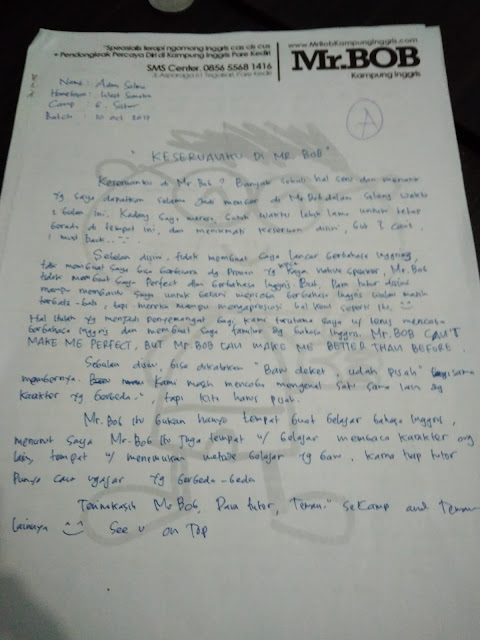 "Spesialis terapi ngomong Inggris cas cis cus
+ Pendongkrak Percaya Diri di Kampung Inggris Pare Kediri
SMS Center. 0856 5568 1416
Jl. Asparaga 61 Tegalsari, Pare Kediri
www.MrBobKampungInggris.com
Mr.BOB
Kampung Inggris
Name :
Hometown : West Sumatra
Camp :
Batch : 10 oct 2017
A
" KESERUANKU DI MR. BOB"
Keseruanku di Mr. Bob ? Banyak sekali hal seru dan menarik
yg saya dapatkan selama jadi member di Mr. Bob dalam selang waktu
2 bulan ini. Kadang saya merasa butuh waktu lebih lama untuk tetap
berada di tempat ini, dan menikmati keseruan disini, but I can't
I must back..
Sebulan disini, tidak membuat saya lancar berbahasa Inggris,
tdk membuat saya bisa berbicara dg Pronun yg kaya native speaker, Mr. Bob
tidak membuat saya Perfect dlm berbahasa Inggris. But, Para tutor disini
mampu membantu saya untuk berani mencoba berbahasa Inggris walau masih
terbata-bata, tapi mereka mampu mengapresiasi hal kecil seperti itu.
Hal itulah yg menjadi penyemangat bagi kami terutama saya u/ terus mencoba
berbahasa Inggris dan membuat saya familiar dg bahasa Inggris. Mr. BOB CAN'T
MAKE ME PERFECT, BUT Mr. BOB CAN MAKE ME BETTER THAN BEFORE.
Sebulan disini, bisa dikatakan "Baru deket, udah pisah" sesama
membernya. Kami masih mencoba mengenal satu sama lain dg
karakter yg berbeda", tapi kita harus pisah.
Mr. Bob itu bukan hanya tempat buat belajar bahasa Inggris,
menurut saya Mr. Bob itu juga tempat u/ belajar membaca karakter org
lain, tempat u/ menemukan metode belajar yg baru, karna tiap tutor
Punya cara ngajar yg berbeda-beda
Terimakasih Mr. Bob, Para tutor, Teman" seKamp and Teman
lainnya See u on Top